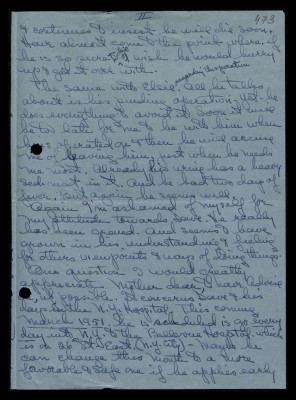 II
473
& continues to insist he will die soon.
Have almost come to the point where, if
he is so sure of it I wish he would hurry
up & get it over with.
regarding the operation
The same with Elsie. All he talks
about is his pending operation. Yet he
does everything to avoid it. Soon it will
be too late for me to be with him when
he is operated on & then he will accuse
me of leaving him, just when he needs
me most. Already his urine has a heavy
sediment in it. And he had two days of
fever. But again he seems well.
Again I'm ashamed of myself for
my attitude towards Dave. He really
has been good. And seems to have
grown in his understanding & feeling
for others viewpoints & ways of doing things.
One question I would greatly
appreciate, Mother dear, to have advise
on, if possible. It concerns Dave & his
days in the N.Y. hospital. This coming
March 1951, he is scheduled to go every
day into N.Y. to the Bellevue Hospital, which
is on 26 St. East (N.Y. City) - Maybe he
can change this month to a more
favorable & safe one if he applies early